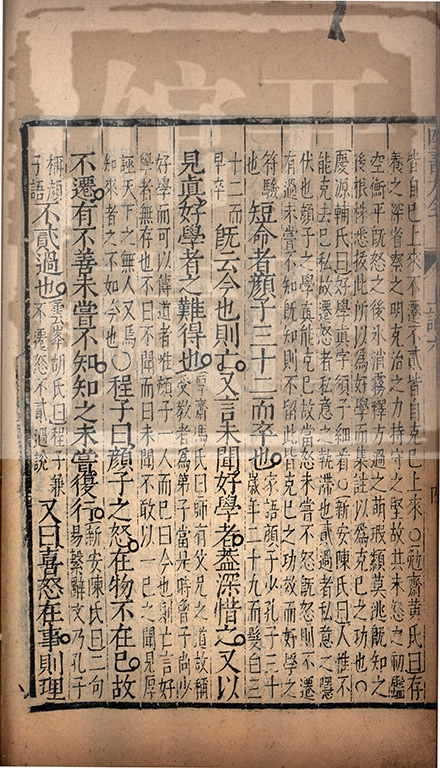 皆自己上來不遷不貳皆自克己上來○勉齋黃氏曰存
養之深省察之明克治之力持守之堅故其未怒之初鑑
空衡平既怒之後氷消霧釋方過之萌瑕纇莫逃既知之
後根株悉拔此所以為好學而集註以為克己之功也○
慶源輔氏曰好學真字須子細看○新安陳氏曰人惟不
能克去己私故遷怒者私意之執滯也貳過者私意之隱
伏也顏子之學真能克己故當怒未嘗不怒既怒則不遷
有過未嘗不知既知則不留此皆克己之功效而好學之
符驗也短命者顏子三十二而卒也家語顏子少孔子三十歲年二十九而髮白三
十二而早卒既云今也則亡又言未聞好學者蓋深惜之又以
見真好學者之難得也厚齋馮氏曰師有父兄之道故稱受教者為弟子當是時曾子尚少
好學而可以傳道者惟顏子一人而已曰今也則亡言好
學者無存也不曰不聞而曰未聞不敢以一己之聞見厚
誣天下之無人又焉知來者之不如今也○程子曰顏子之怒在物不在己故
不遷有不善未嘗不知知之未嘗復行新安陳氏曰二句易繫辭文乃孔子
稱顏子語不貳過也雲峯胡氏曰程子兼不遷怒不貳過說又曰喜怒在事則理